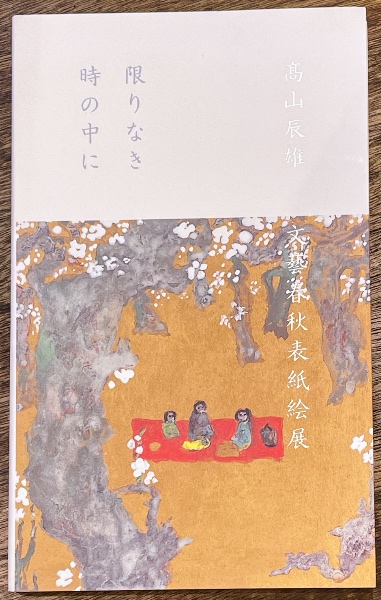 髙山辰雄 文藝春秋表紙絵展
限りなき
時の中に